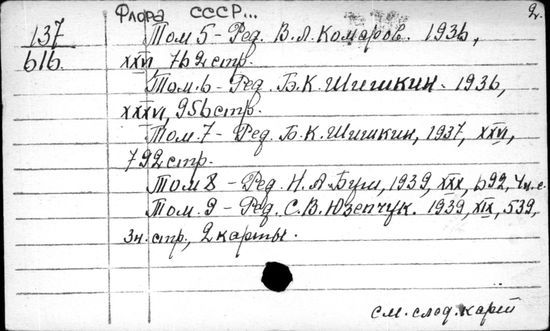 Флора СССР... 2.
137 Том 5 - Ред. В.Л. Комаров. 1936,
б1б. XXVI, 762 стр.
Том. 6 - Ред. Б.К. Шишкин. 1936,
XXXVI, 956 стр.
Том. 7 - Ред. Б.К. Шишкин, 1937, XXVI,
792 стр.
Том 8 - Ред. Н.А. Буш, 1939, XXX, 692, 4н.с.
Том. 9 - Ред. С.В. Юзепчук. 1939, XIX, 539,
3н. стр., 2 карты.
см. след. карт